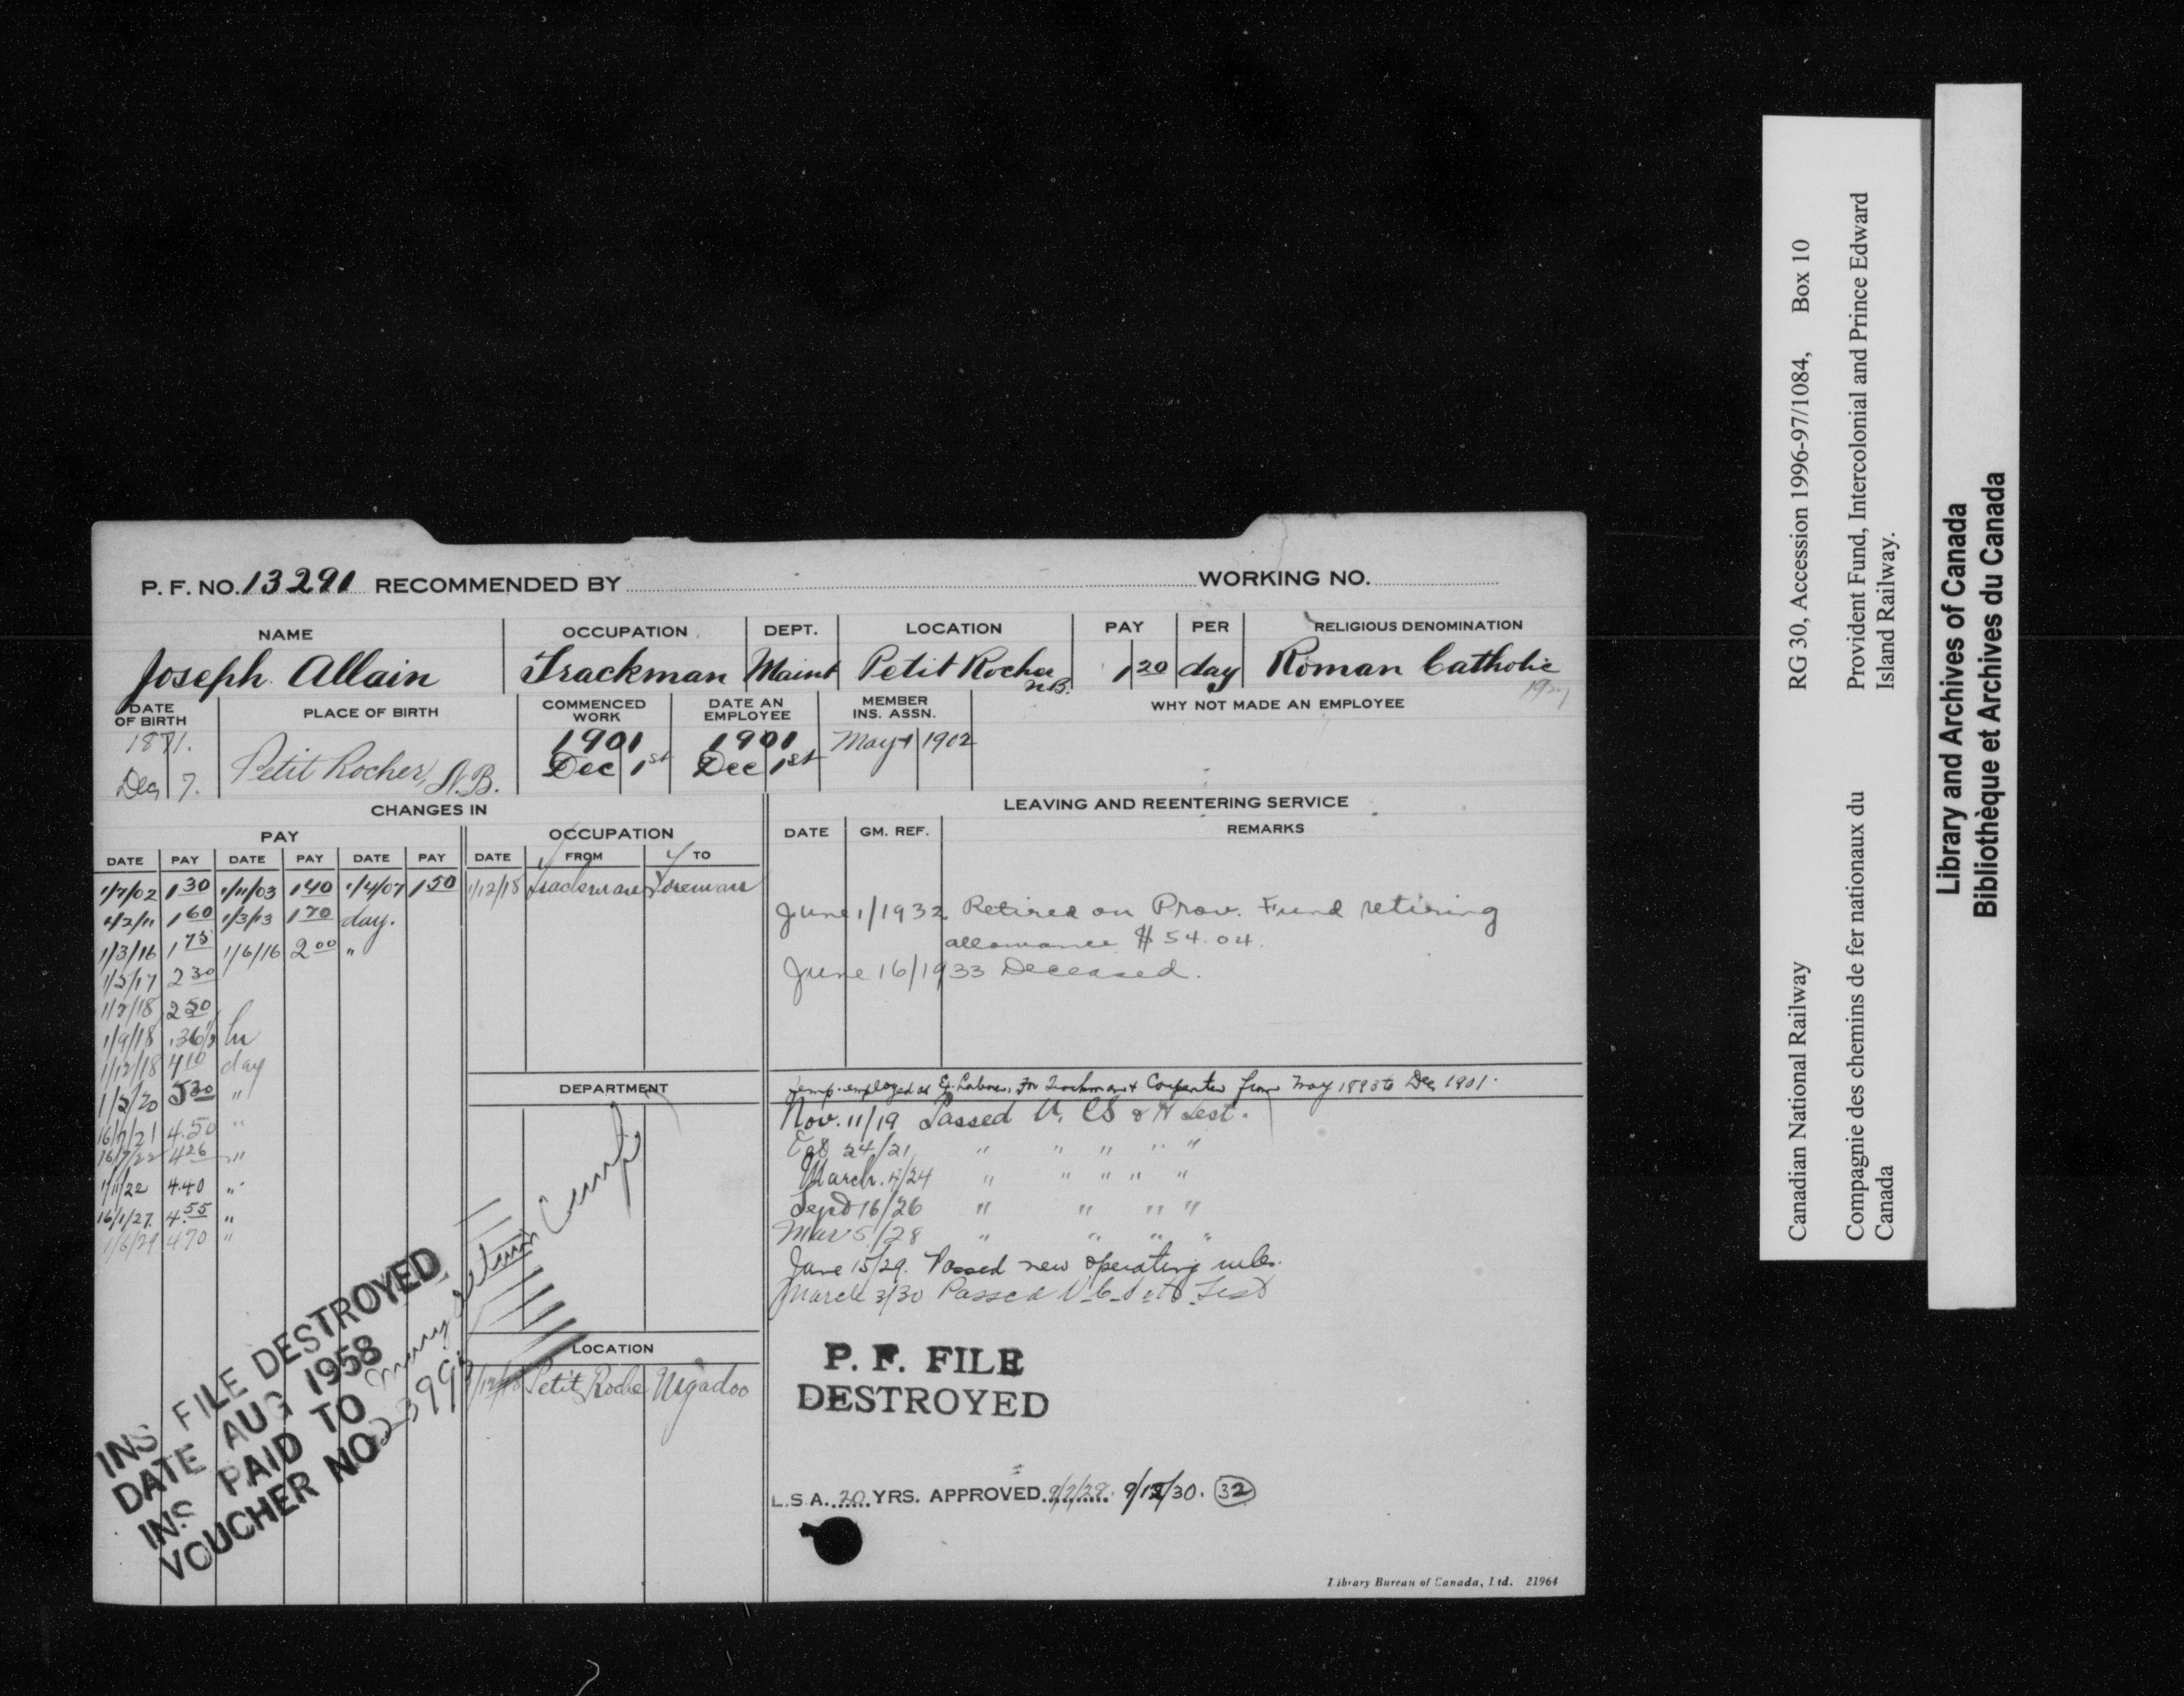 P. F. NO. 13291 RECOMMENDED BY WORKING NO.
NAME OCCUPATION DEPT. LOCATION PAY PER RELIGIOUS DENOMINATION
Joseph Allain Trackman Maint Petit Rocher N.B. 1 20 day Roman Catholic
DATE OF BIRTH PLACE OF BIRTH COMMENCED WORK DATE AN EMPLOYEE MEMBER INS. ASSN. WHY NOT MADE AN EMPLOYEE
1871. 1901 1901 May 1 1902
Dec 7. Petit Rocher, N.B. Dec 1st Dec 1st
CHANGES IN
PAY OCCUPATION
DATE PAY DATE PAY DATE PAY DATE FROM TO
1/7/02 1 30 1/11/03 1 40 1/4/07 1 50 1/12/18 Trackman Foreman
1/2/11 1 60 1/3/13 1 70 day.
1/3/16 1 75 1/6/16 2 00 "
1/5/17 2 30
2 50
1/9/18 .36 1/2 hr
1/12/18 4 10 day
1/5/20 5 30 "
16/7/21 4.50 "
16/7/22 4 26 "
1/11/22 4.40 "
16/1/27 4.55 "
1/6/29 4 70 "
DEPARTMENT
LOCATION
1/12/18 Petit Roche Nigadoo
INS FILE DESTROYED
DATE AUG 1958
INS PAID TO Mary
VOUCHER NO
LEAVING AND REENTERING SERVICE
DATE GM. REF. REMARKS
June 1/1932 Retired on Prov. Fund retiring
allowance $54.04.
June 16/1933 Deceased.
Temp. employed as Trackman & Carpenter from May 1893 to Dec 1901.
Nov. 11/19 Passed V. CS & H Test.
24/21 " " " " "
March. /24 " " " " "
Sept 16/26 " " " "
Mar 5/28 " " " "
June 15/29. Passed new operating rules.
March 3/30 Passed V. C. S & H. Test
P. F. FILE
DESTROYED
L. S. A. 20 YRS. APPROVED 9/12/30. 32
Library Bureau of Canada, Ltd. 21964
Canadian National Railway RG 30, Accession 1996-97/1084, Box 10
Compagnie des chemins de fer nationaux du Canada
Provident Fund, Intercolonial and Prince Edward Island Railway.
Library and Archives of Canada
Bibliothèque et Archives du Canada